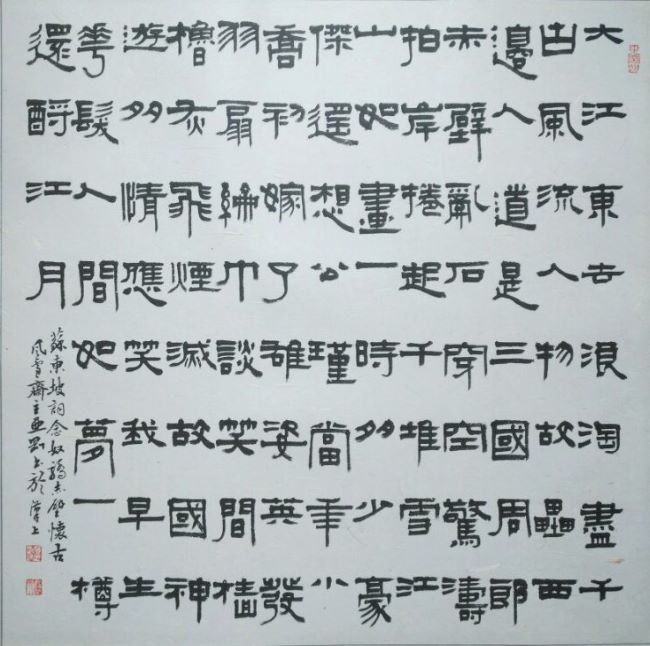 大江東去浪淘盡千
古風流人物故壘西
邊人道是三國周郎
赤壁亂石穿空驚濤
拍岸捲起千堆雪江
山如畫一時多少豪
傑遙想公瑾當年小
喬初嫁了雄姿英發
羽扇綸巾談笑間檣
櫓灰飛煙滅故國神
遊多情應笑我早生
華髮人間如夢一樽
還酹江月
蘇東坡詞念奴嬌赤壁懷古
風雪齋主亞書於漢上